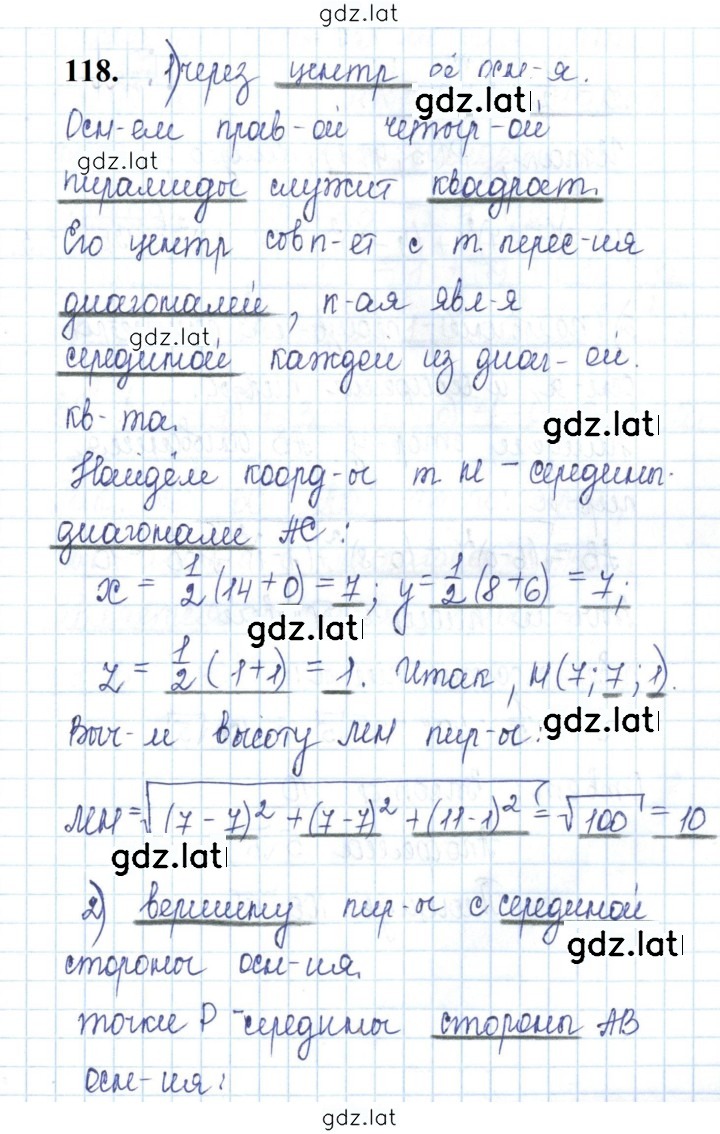 gdz.lat
118. 1) через центр её осн-я.
gdz.lat
Осн-ем прав-ой четыр-ой
gdz.lat
пирамиды служит квадрат.
Его центр совп-ет с т. перес-ия
диагоналей, к-ая явл-я
gdz.lat
серединой каждой из диаг-ой.
кв-та.
gdz.lat
Найдём коорд-ы т. М - середины
диагонали АС:
x = 1/2 (14+0) = 7; y = 1/2 (8+6) = 7;
gdz.lat
z = 1/2 (1+1) = 1. Итак, М(7; 7; 1).
gdz.lat
Выч-м высоту пир-ы:
= √((7-7)² + (7-7)² + (11-1)²) = √100 = 10
gdz.lat
2) вершину пир-ы с серединой
gdz.lat
стороны осн-ия.
точки Р - середины стороны АВ
осн-ия:
gdz.lat